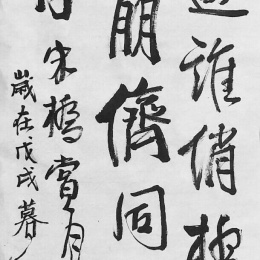 誰俏
朋儕同
宋橋賞月
歲在戊戌暮